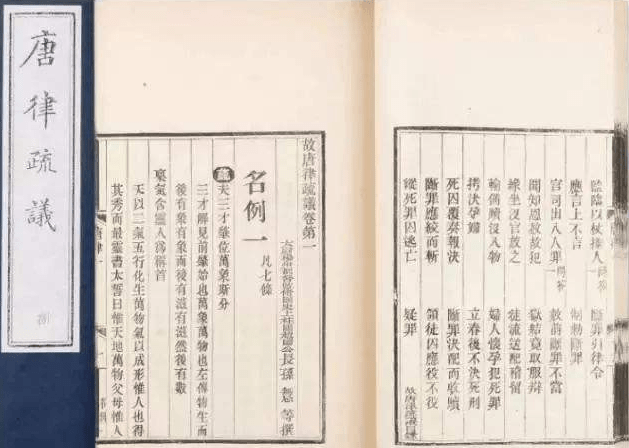 唐律疏議
監臨以杖捶人 斷罪引律令
應言上不言 制勅斷罪
官司出入人罪 赦前斷罪不當
聞知恩赦故犯 獄結竟取服辯
緣坐沒官放之 徒流送配稽留
輸備贖沒入物 婦人懷孕犯死罪
拷決孕婦 立春後不決死刑
死囚覆奏報決 斷罪決配而收贖
斷罪應絞而斬 領徒囚應役不役
縱死罪囚逃亡 疑罪
故唐律疏議目錄
故唐律疏議卷第一
公長孫無忌等撰
名例一 凡七條
夫三才肇位萬象斯分
三才解見前肇始也萬象萬物也左傳物生而
後有象有象而後有滋有滋然後有數
稟氣含靈人爲稱首
天以二氣五行化生萬物氣以成形惟人也得
其秀而最靈書太誓曰惟天地萬物父母惟人